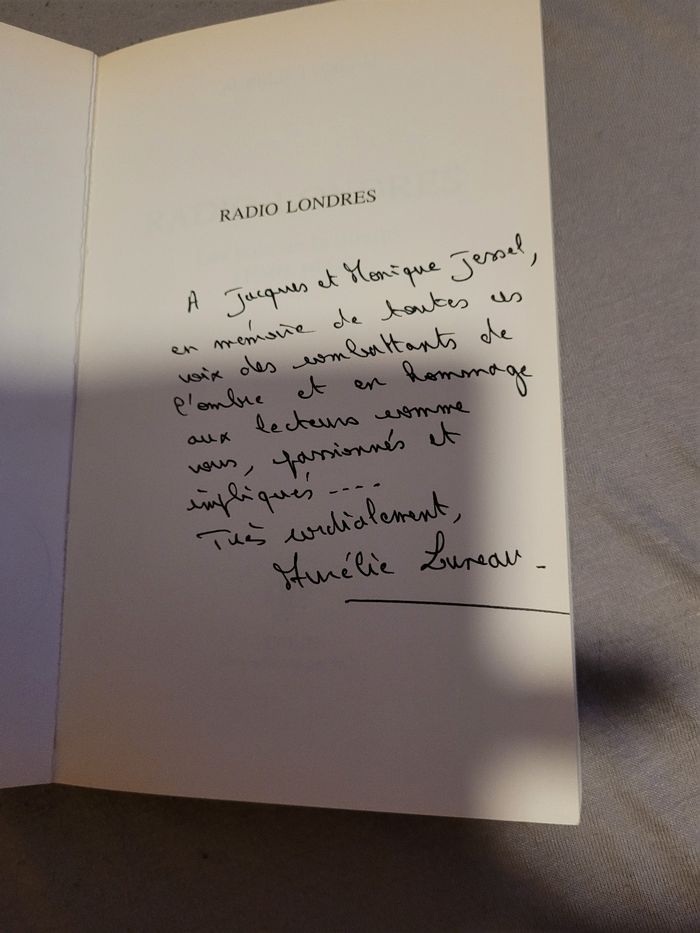 RADIO LONDRES
A Jacques et Monique Jessel,
en mémoire de toutes ces
voix des combattants de
l'ombre et en hommage
aux lecteurs comme
vous, passionnés et
impliqués ----
Très cordialement,
Aurélie Luneau -